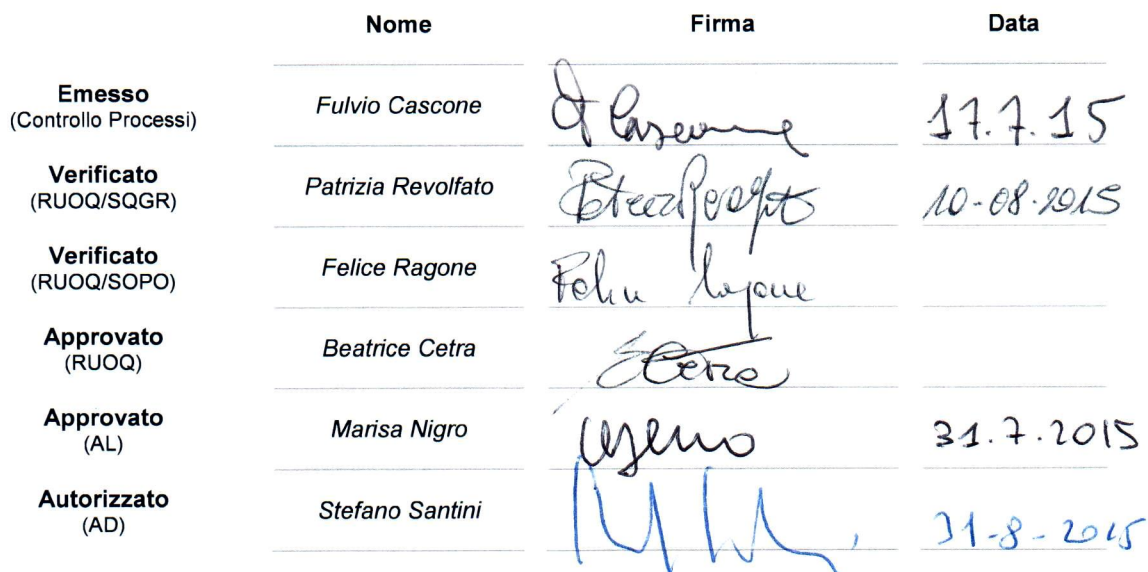 Nome Firma Data
Emesso
(Controllo Processi) Fulvio Cascone F Cascone 17.7.15
Verificato
(RUOQ/SQGR) Patrizia Revolfato 10-08-2015
Verificato
(RUOQ/SOPO) Felice Ragone
Approvato
(RUOQ) Beatrice Cetra Cetra
Approvato
(AL) Marisa Nigro 31.7.2015
Autorizzato
(AD) Stefano Santini 31-8-2015